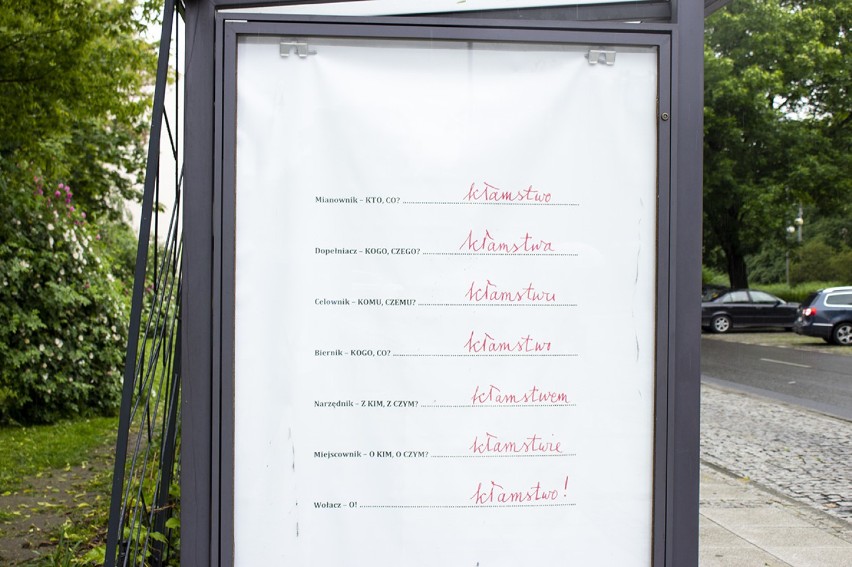 Mianownik – KTO, CO? kłamstwo
Dopełniacz – KOGO, CZEGO? kłamstwa
Celownik – KOMU, CZEMU? kłamstwu
Biernik – KOGO, CO? kłamstwo
Narzędnik – Z KIM, Z CZYM? kłamstwem
Miejscownik – O KIM, O CZYM? kłamstwie
Wołacz – O! kłamstwo!